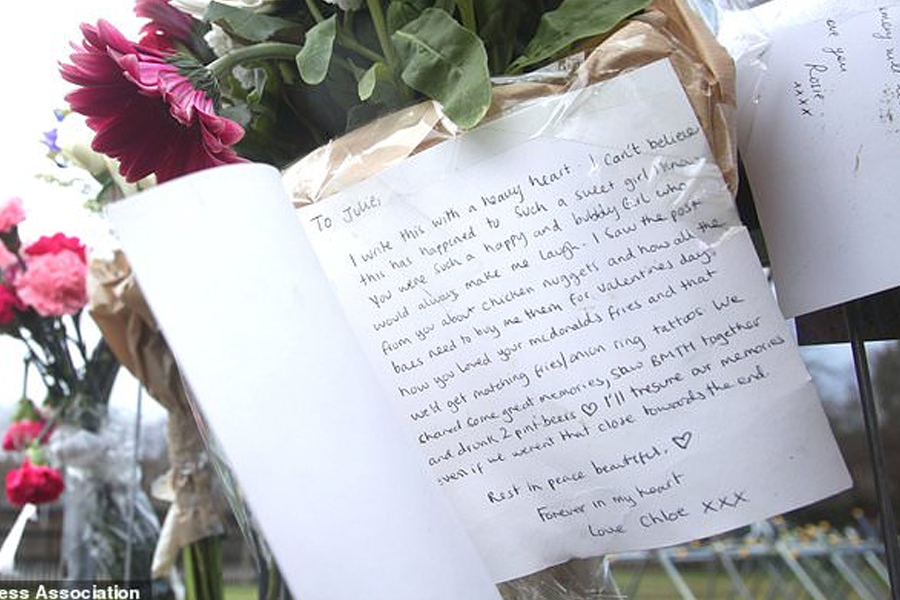 To Julie,
I write this with a heavy heart. I can't believe
this has happened to such a sweet girl I knew
You were such a happy and bubbly Girl who
would always make me laugh. I saw the post
from you about chicken nuggets and how all the
baes need to buy me them for valentines day.
how you loved your mcdonalds fries and that
we'd get matching fries/onion ring tattoos. We
shared some great memories, saw BMTH together
and drunk 2 pint beers ♡ I'll tresure our memories
even if we werent that close towards the end.
Rest in peace beautiful. ♡
Forever in my heart
Love Chloe xxx
will
love you
Rosie
xxxx
ess Association